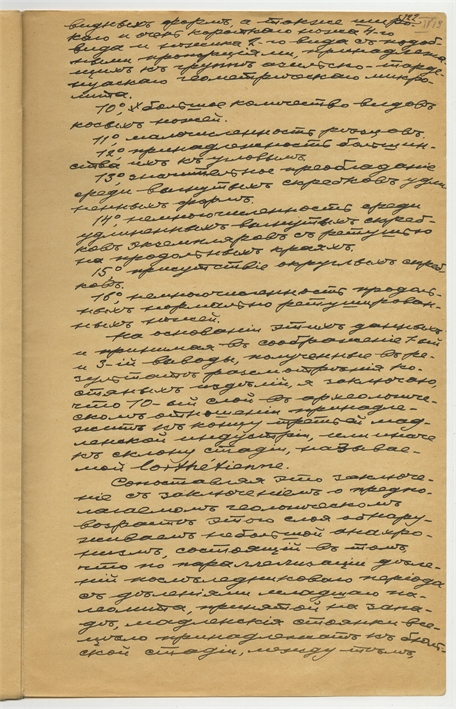 видныхъ формъ, а также широ-
каго и очень короткаго ножа 4-го
вида и ножика 7-го вида съ подоб-
ными пропорціями, принадлежа-
щихъ къ группѣ азильско-тарде-
нуазскаго геометрическаго микро-
лита.
10°, большое количество видовъ
косыхъ ножей.
11° малочисленность рѣзцовъ.
12° принадлежность большин-
ства ихъ къ угловымъ.
13° значительное преобладаніе
среди вогнутыхъ скребковъ удли-
ненныхъ формъ.
14° немногочисленность среди
удлиненныхъ вогнутыхъ скреб-
ковъ экземпляровъ съ ретушью
на продольныхъ краяхъ.
15° присутствіе округлыхъ скреб-
ковъ.
16° немногочисленность продоль-
ныхъ нормально ретуширован-
ныхъ ножей.
На основаніи этихъ данныхъ
и принимая въ соображеніе
и 3-ій выводы, полученные въ ре-
зультатѣ разсмотрѣнія ко-
стяныхъ издѣлій, я заключаю,
что 10-ый слой въ археологиче-
скомъ отношеніи принадле-
житъ къ концу третьей мад-
ленской индустріи, или иначе
къ склону стадіи, называе-
мой lorthétienne.
Сопоставляя это заключе-
ніе съ заключеніемъ о предпо-
лагаемомъ геологическомъ
возрастѣ этого слоя обнару-
живаемъ небольшой анахро-
низмъ, состоящій въ томъ,
что по параллелизаціи дѣле-
ній послѣледниковаго періода
съ дѣленіями младшаго па-
леолита, принятой на запа-
дѣ, мадленскія стоянки все-
цѣло принадлежатъ къ
ской стадіи, между тѣмъ,